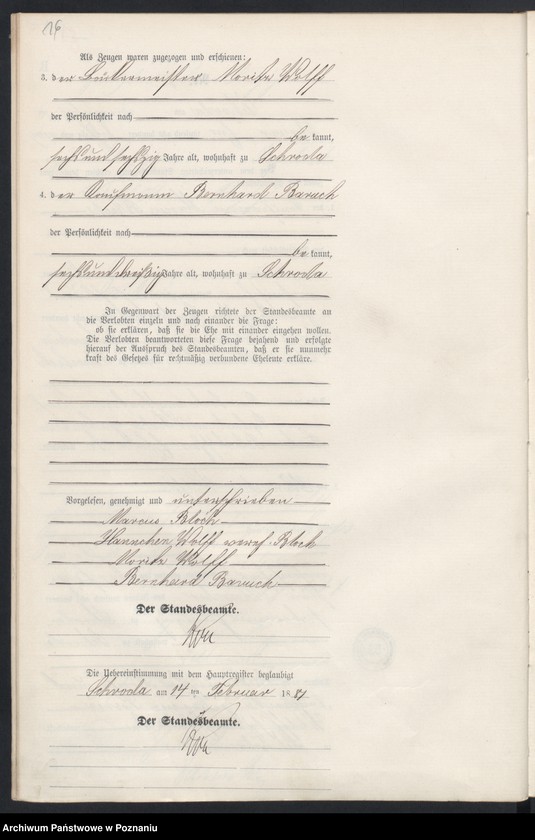 16
Als Zeugen waren zugezogen und erschienen:
3. der Bäckermeister Moritz Wolff
der Persönlichkeit nach
be kannt,
sechsundsechzig Jahre alt, wohnhaft zu Schroda
4. der Kaufmann Bernhard Baruch
der Persönlichkeit nach
be kannt,
sechsunddreißig Jahre alt, wohnhaft zu Schroda
In Gegenwart der Zeugen richtete der Standesbeamte an
die Verlobten einzeln und nach einander die Frage:
ob sie erklären, daß sie die Ehe mit einander eingehen wollen.
Die Verlobten beantworteten diese Frage bejahend und erfolgte
hierauf der Ausspruch des Standesbeamten, daß er sie nunmehr
kraft des Gesetzes für rechtmäßig verbundene Eheleute erkläre.
Vorgelesen, genehmigt und unterschrieben
Marcus Bloch
Hannchen Wolff Bloch
Moritz Wolff
Bernhard Baruch
Der Standesbeamte.
Die Uebereinstimmung mit dem Hauptregister beglaubigt
Schroda am 14 ten Februar 18
Der Standesbeamte.
Archiwum Państwowe w Poznaniu